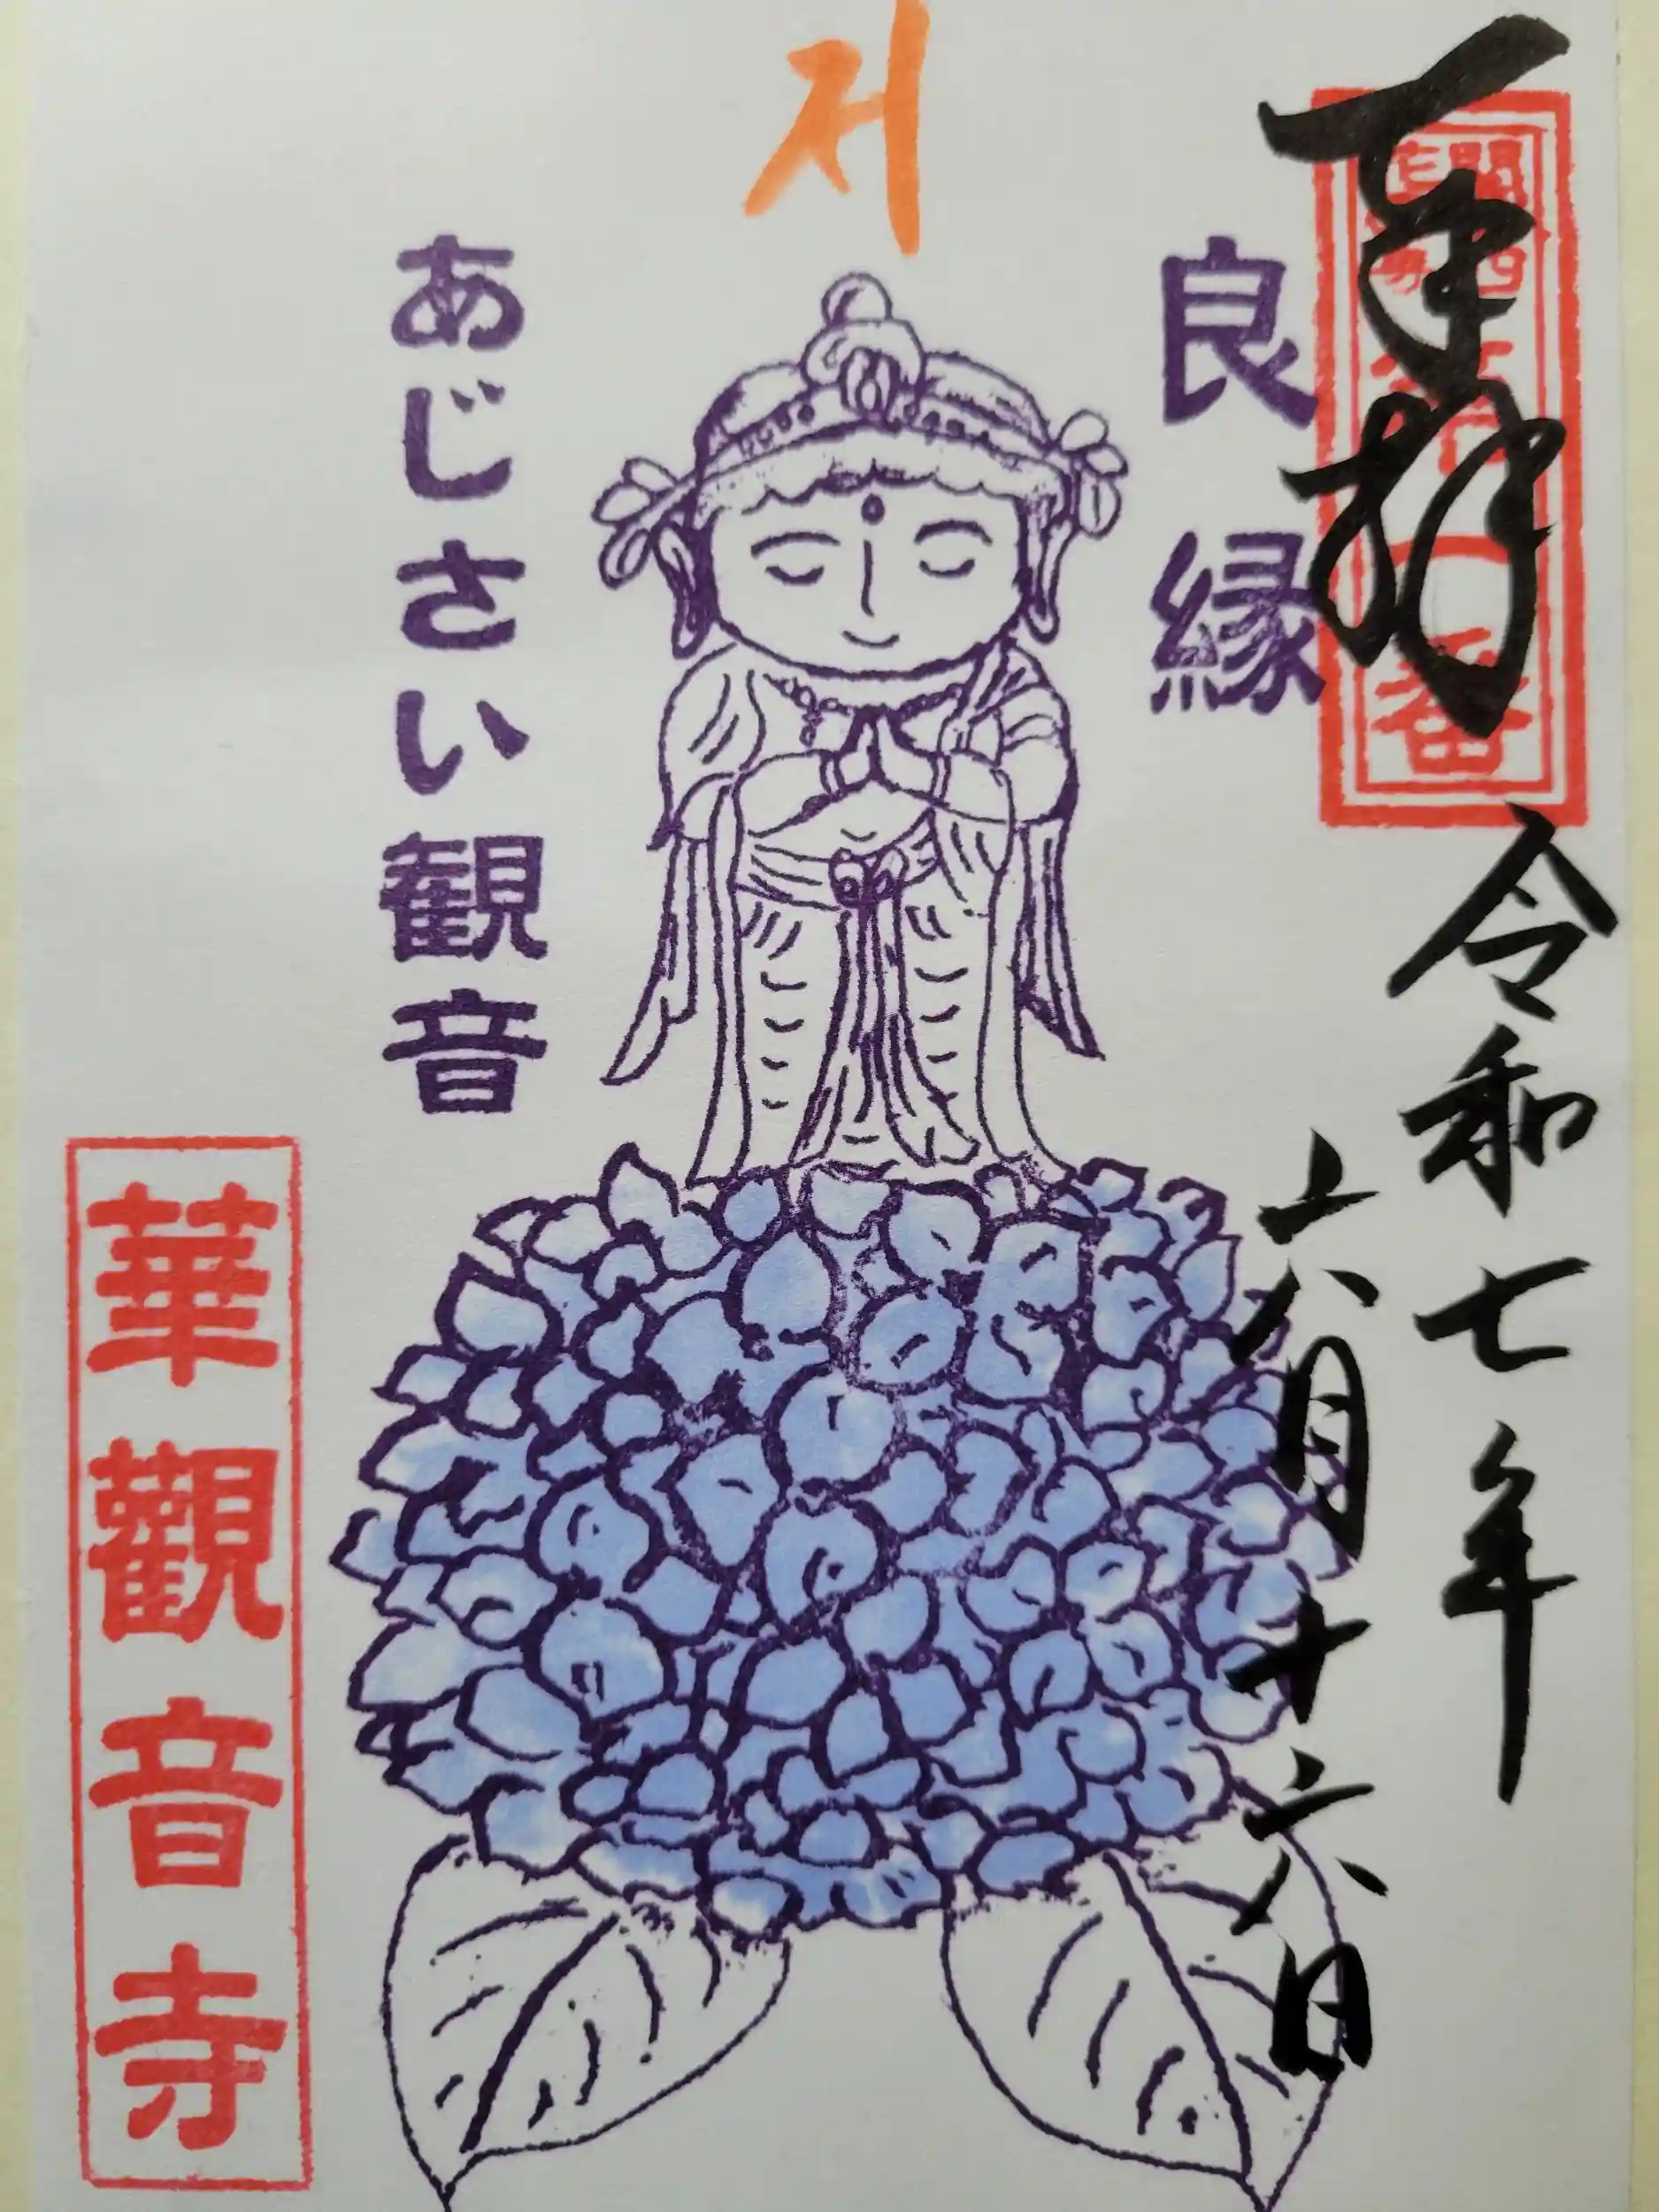 奉拝
一番
令和七年
六月十六日
良縁
あじさい観音
華觀音寺